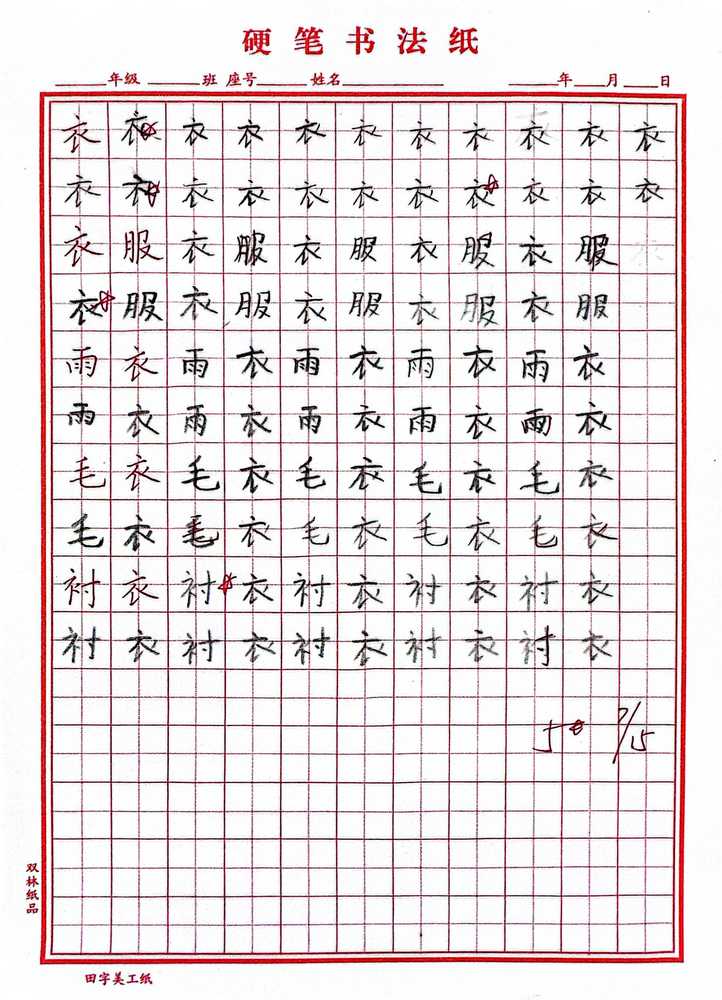 硬笔书法纸
______年级 ______班 座号______ 姓名____________ ______年____月____日
衣衣衣衣衣衣衣衣衣衣衣
衣衣衣衣衣衣衣衣衣衣衣
衣服衣服衣服衣服衣服衣
衣服衣服衣服衣服衣服
雨衣雨衣雨衣雨衣雨衣
雨衣雨衣雨衣雨衣雨衣
毛衣毛衣毛衣毛衣毛衣
毛衣毛衣毛衣毛衣毛衣
衬衣衬衣衬衣衬衣衬衣
衬衣衬衣衬衣衬衣衬衣
5☆ 7/15
双林纸品
田字美工纸